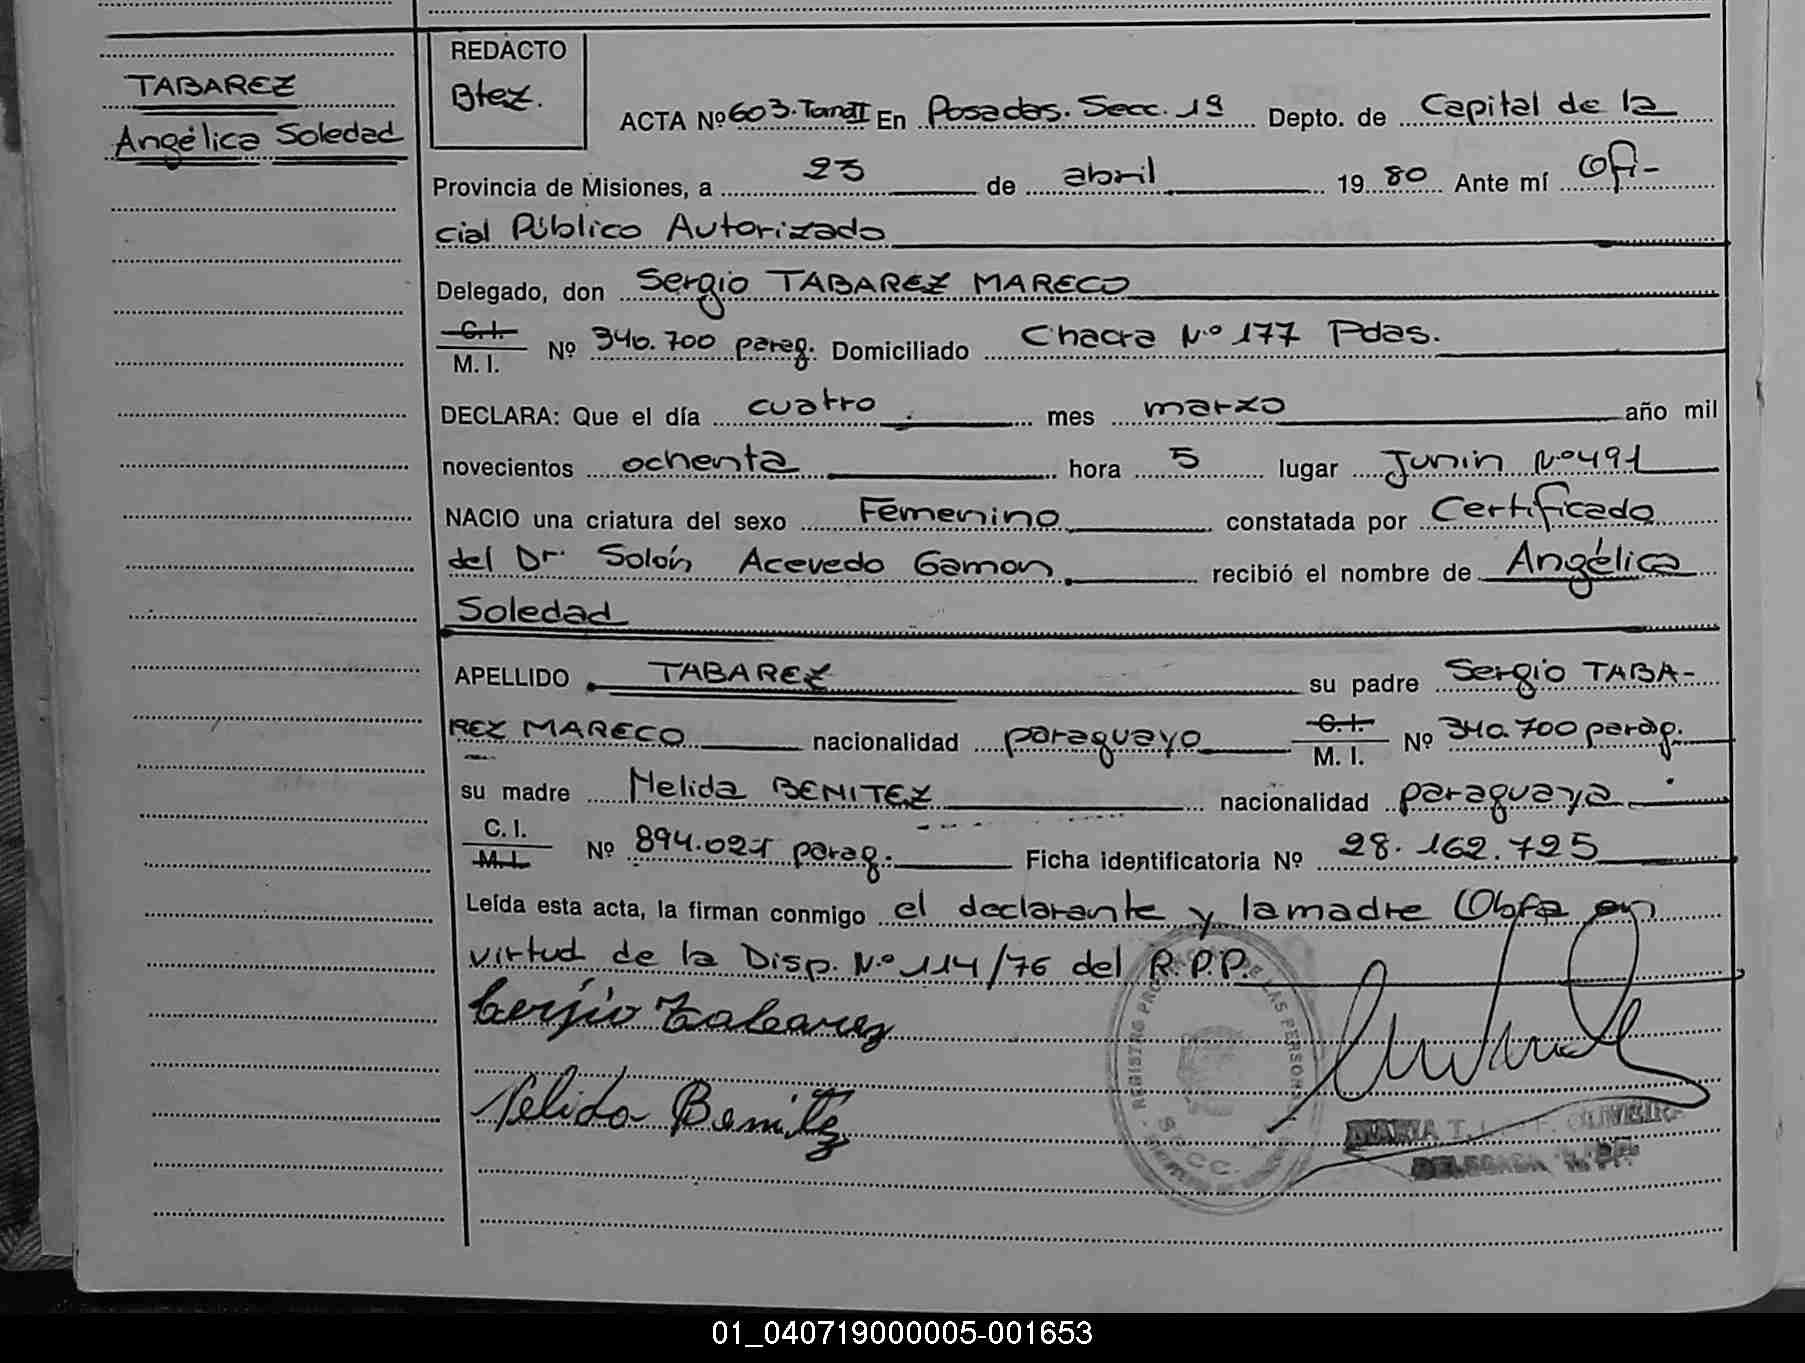 TABAREZ
Angélica Soledad
REDACTO
Btez.
ACTA Nº 603. Tomo II En Posadas. Secc. 1ª Depto. de Capital de la
Provincia de Misiones, a 23 de abril 19 80 Ante mí Ofi-
cial Público Autorizado
Delegado, don Sergio TABAREZ MARECO
C.I.
M. I. Nº 340.700 parag. Domiciliado Chacra Nº 177 Pdas.
DECLARA: Que el día cuatro mes marzo año mil
novecientos ochenta hora 5 lugar Junin Nº 491
NACIO una criatura del sexo Femenino constatada por Certificado
del Dr. Solón Acevedo Gamon recibió el nombre de Angélica
Soledad
APELLIDO TABAREZ su padre Sergio TABA-
REZ MARECO nacionalidad paraguayo C.I.
M. I. Nº 340.700 parag.
su madre Nelida BENITEZ nacionalidad paraguaya
C. I.
M.I. Nº 894.021 parag. Ficha identificatoria Nº 28.162.725
Leída esta acta, la firman conmigo el declarante y la madre Obra en
virtud de la Disp. Nº 114/76 del R.P.P.
Sergio Tabarez
Nelida Benitez
REGISTRO PROVINCIAL DE LAS PERSONAS
SECC.
MARIA T. OLIVEIRA
DELEGADA
01_040719000005-001653